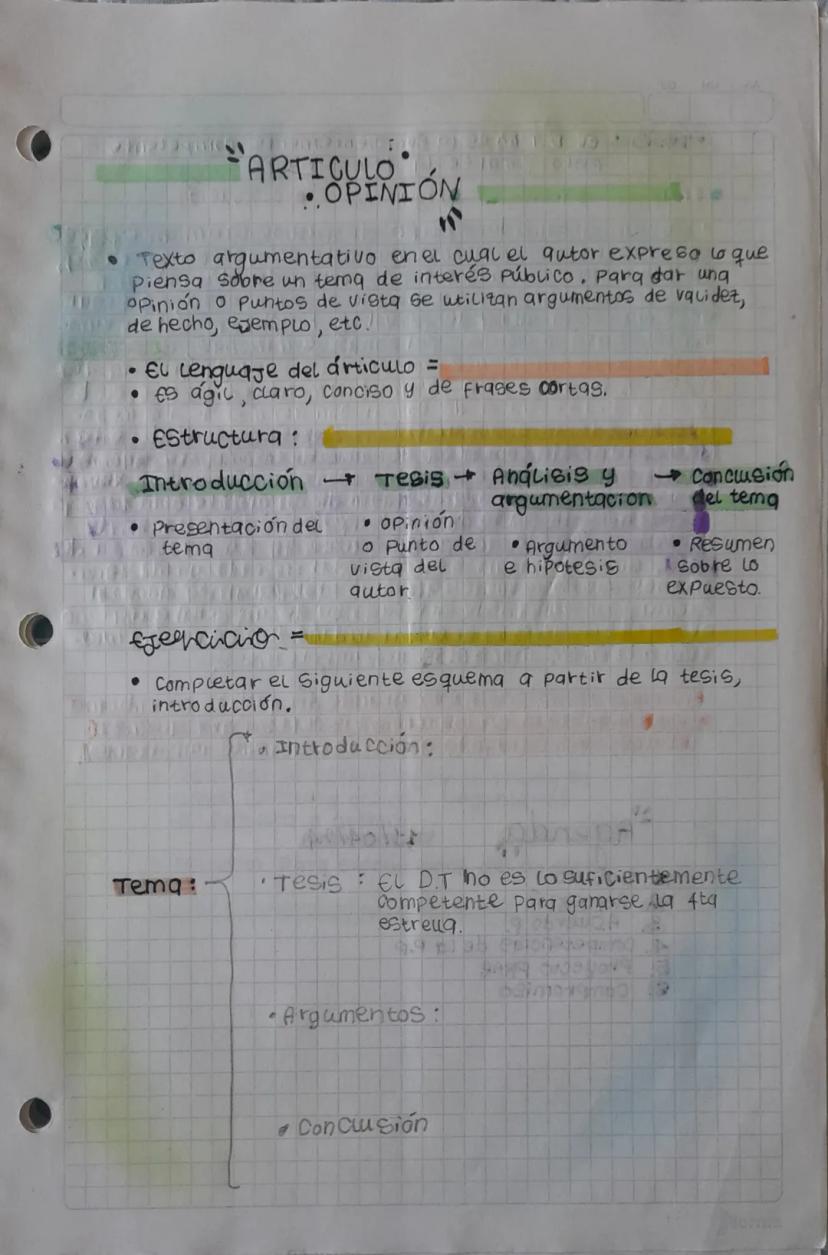 ARTICULO
OPINIÓN
• Texto argumentativo en el cual el autor expresa lo que
piensa sobre un tema de interés público. Para dar una
opinión o puntos de vista se utilizan argumentos de validez,
de hecho, ejemplo, etc.
• El Lenguaje del árticulo =
• es ágil, claro, conciso y de frases cortas.
• Estructura:
Introducción → Tesis → Análisis y → Conclusión
argumentacion del tema
• Presentación del • opinión
tema o punto de • Argumento • Resumen
vista del e hipotesis sobre lo
autor expuesto.
Ejercicio =
• Completar el siguiente esquema a partir de la tesis,
introducción.
• Introducción:
Tema: • Tesis: El D.T no es lo suficientemente
competente para ganarse la 4ta
estrella.
• Argumentos:
• Conclusión